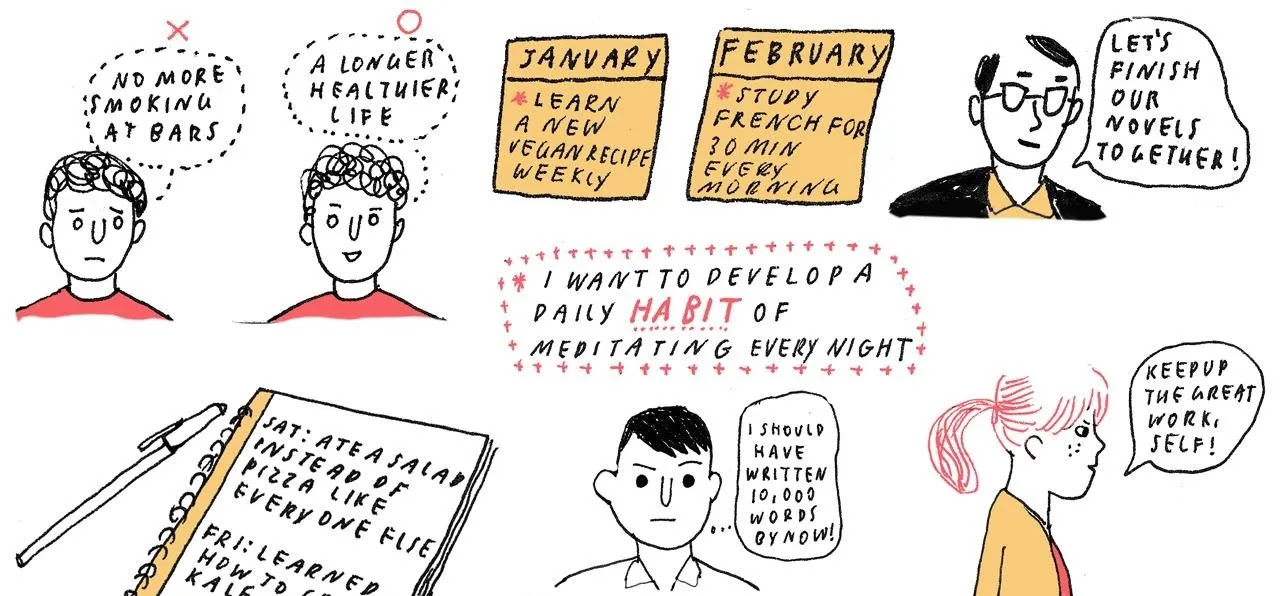 NO MORE
SMOKING
AT BARS
A LONGER
HEALTHIER
LIFE
JANUARY
* LEARN
A NEW
VEGAN RECIPE
WEEKLY
FEBRUARY
* STUDY
FRENCH FOR
30 MIN
EVERY
MORNING
LET'S
FINISH
OUR
NOVELS
TOGETHER!
* I WANT TO DEVELOP A
DAILY HABIT OF
MEDITATING EVERY NIGHT
SAT: ATE A SALAD
INSTEAD OF
PIZZA LIKE
EVERYONE ELSE
FRI: LEARNED
HOW TO
KALE
I SHOULD
HAVE
WRITTEN
10,000
WORDS
BY NOW!
KEEP UP
THE GREAT
WORK,
SELF!